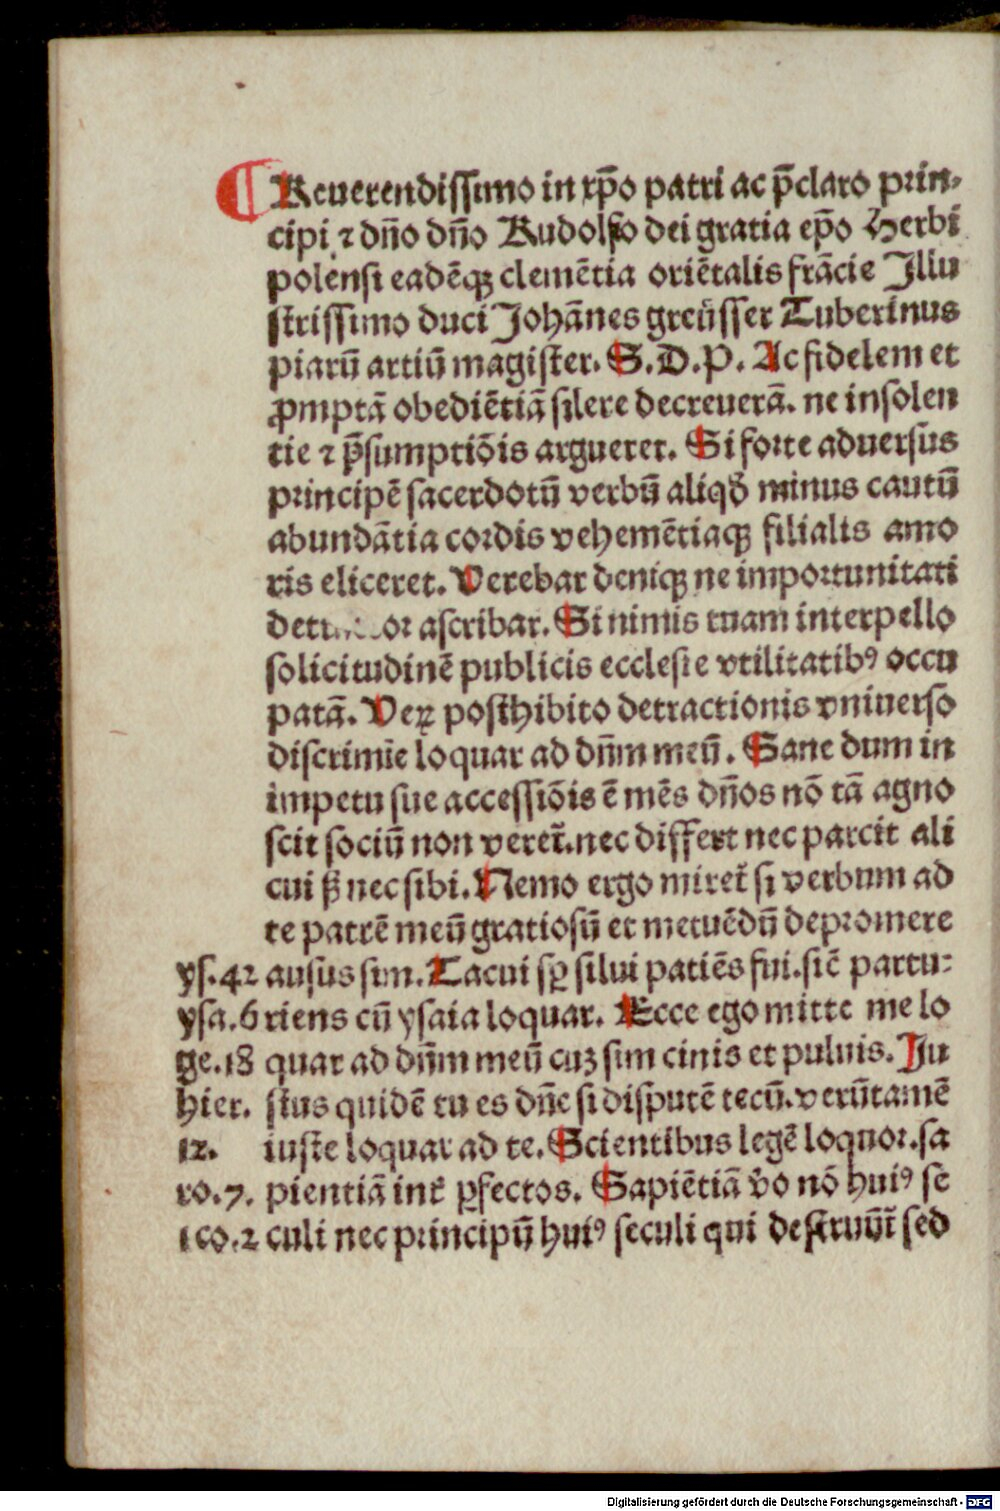 ¶ Reuerendissimo in xp̄o patri ac p̄claro prin-
cipi ⁊ dn̄o dn̄o Rudolfo dei gratia ep̄o Herbi
polensi eadēqꝫ clemētia oriētalis frācie Illu
strissimo duci Johānes greüsser Tuberinus
piarū artiū magister. S.D.P. Ac fidelem et
ꝓmptā obediētiā silere decreuerā. ne insolen
tie ⁊ p̄sumptiōis arguerer. Si forte aduersus
principē sacerdotū verbū aliqđ minus cautū
abundātia cordis vehemētiaqꝫ filialis amo
ris eliceret. Verebar deniqꝫ ne importunitati
ascribar. Si nimis tuam interpello
solicitudinē publicis ecclesie vtilitatibꝰ occu
patā. Veꝝ posthibito detractionis vniuerso
discrimīe loquar ad dn̄m meū. Sane dum in
impetu sue accessiōis ē mēs dn̄os nō tā agno
scit sociū non veret̄. nec differt nec parcit ali
cui ꝫ nec sibi. Nemo ergo miret̄ si verbum ad
te patrē meū gratiosū et metuēdū depromere
ys. 42 ausus sim. Tacui sꝑ silui patiēs fui. sic̄ partu-
ysa. 6 riens cū ysaia loquar. Ecce ego mitte me lo
ge. 18 quar ad dn̄m meū cuꝫ sim cinis et puluis. Iu
hier. stus quidē tu es dn̄e si disputē tecū. verūtamē
12. iuste loquar ad te. Scientibus legē loquor. sa
ro. 7. pientiā int̄ ꝑfectos. Sapiētiā v̊o nō huiꝰ se
1 co. 2 culi nec principū huiꝰ seculi qui destruūt̄ sed
Digitalisierung gefördert durch die Deutsche Forschungsgemeinschaft - DFG